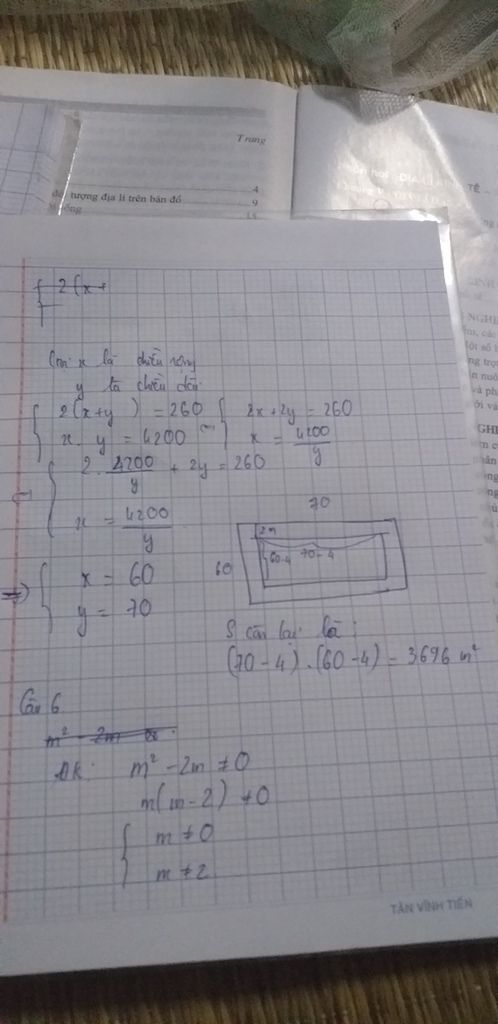 Trang
4
tượng địa lí trên bản đồ 9
TẾ -
NGHI
2(x +
Gọi x là chiều rộng
y là chiều dài
2(x+y) = 260
2x+2y = 260
x. y = 4200
x = 4200/y
2. 4200/y + 2y = 260
x = 4200/y
x = 60
y = 70
70
2m
60
60-4 70-4
S còn lại là:
(70-4).(60-4) = 3696 m²
Câu 6
m² - 2m
ĐK: m² - 2m ≠ 0
m(m-2) ≠ 0
m ≠ 0
m ≠ 2
TÂN VĨNH TIẾN